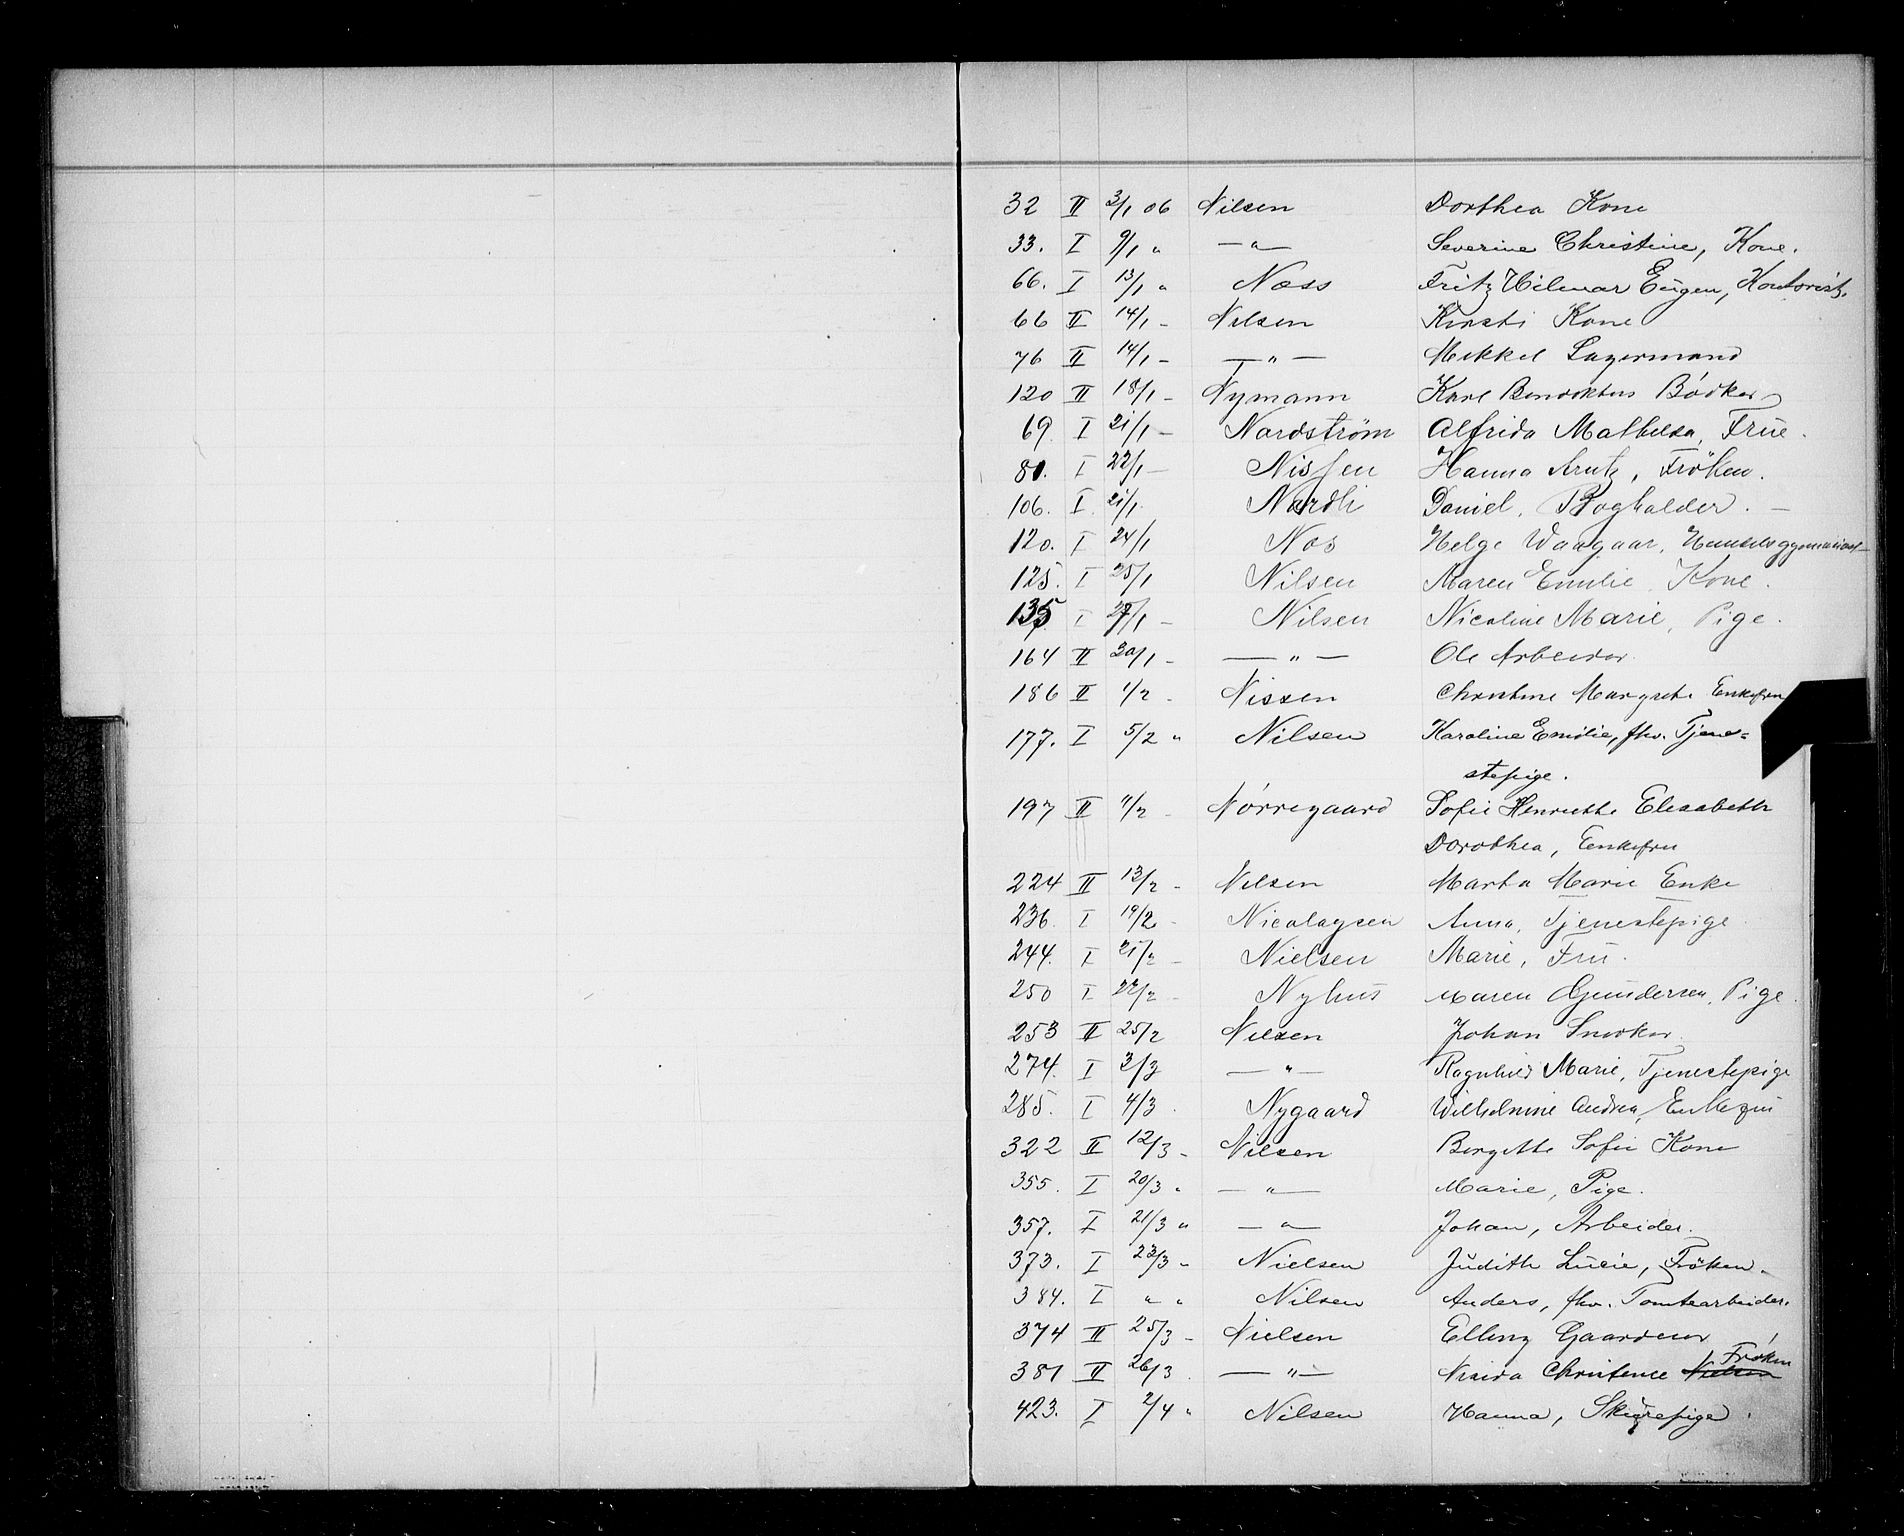 32 II 3/1 06 Nilsen Dorthea Kone
33. I 9/1 " —"— Severine Christine, Kone.
66. I 13/1 " Næss Fritz Hilmar Eugen, Kontorist.
66 II 14/1 - Nilsen Kirsti Kone
76 II 14/1 - —"— Mikkel Lagermand
120 II 18/1 - Nymann Karl Benediktus Bödker
69 I 21/1 - Nordström Alfrida Mathilda, Frue.
81. I 22/1 - Nissen Hanna Arntz, Fröken.
106. I 21/1 Nordli Daniel, Bogholder. —
120. I 24/1 Næs Helge Waagaar, Handelsgymnasiast
125. I 25/1 Nilsen Maren Emilie, Kone.
135 I 27/1 - Nilsen Nicoline Marie, Pige.
164 II 30/1 - —"— Ole Arbeider
186 II 1/2 - Nissen Christine Margrete Enkefru
177. I 5/2 " Nilsen Karoline Emilie, fhv. Tjene=
stepige.
197 II 11/2 - Nörregaard Sofie Henriette Elisabeth
Dorothea, Enkefru
224 II 13/2 - Nilsen Marta Marie Enke
236. I 19/2 - Nicolaysen Anna, Tjenestepige
244. I 21/2 - Nielsen Marie, Fru.
250 I 22/2 - Nyhus Maren Gundersen, Pige.
253 II 25/2 Nilsen Johan Snedker
274. I 3/3 —"— Ragnhild Marie, Tjenestepige
285. I 4/3. Nygaard Wilhelmine Andrea, Enkefru
322 II 12/3 - Nilsen Bergitte Sofie Kone
355. I 20/3 " —"— Marie, Pige.
357. I 21/3 " —"— Johan, Arbeider.
373. I 23/3 " Nielsen Judith Lucie, Fröken.
384. I " " Nilsen Anders, fhv. Tomtearbeider.
374 II 25/3 - Nielsen Elling Gaardeier
381 II 26/3 —"— Christence Nielsen Fröken
423. I 2/4 " Nilsen Hanna, Skurepige.